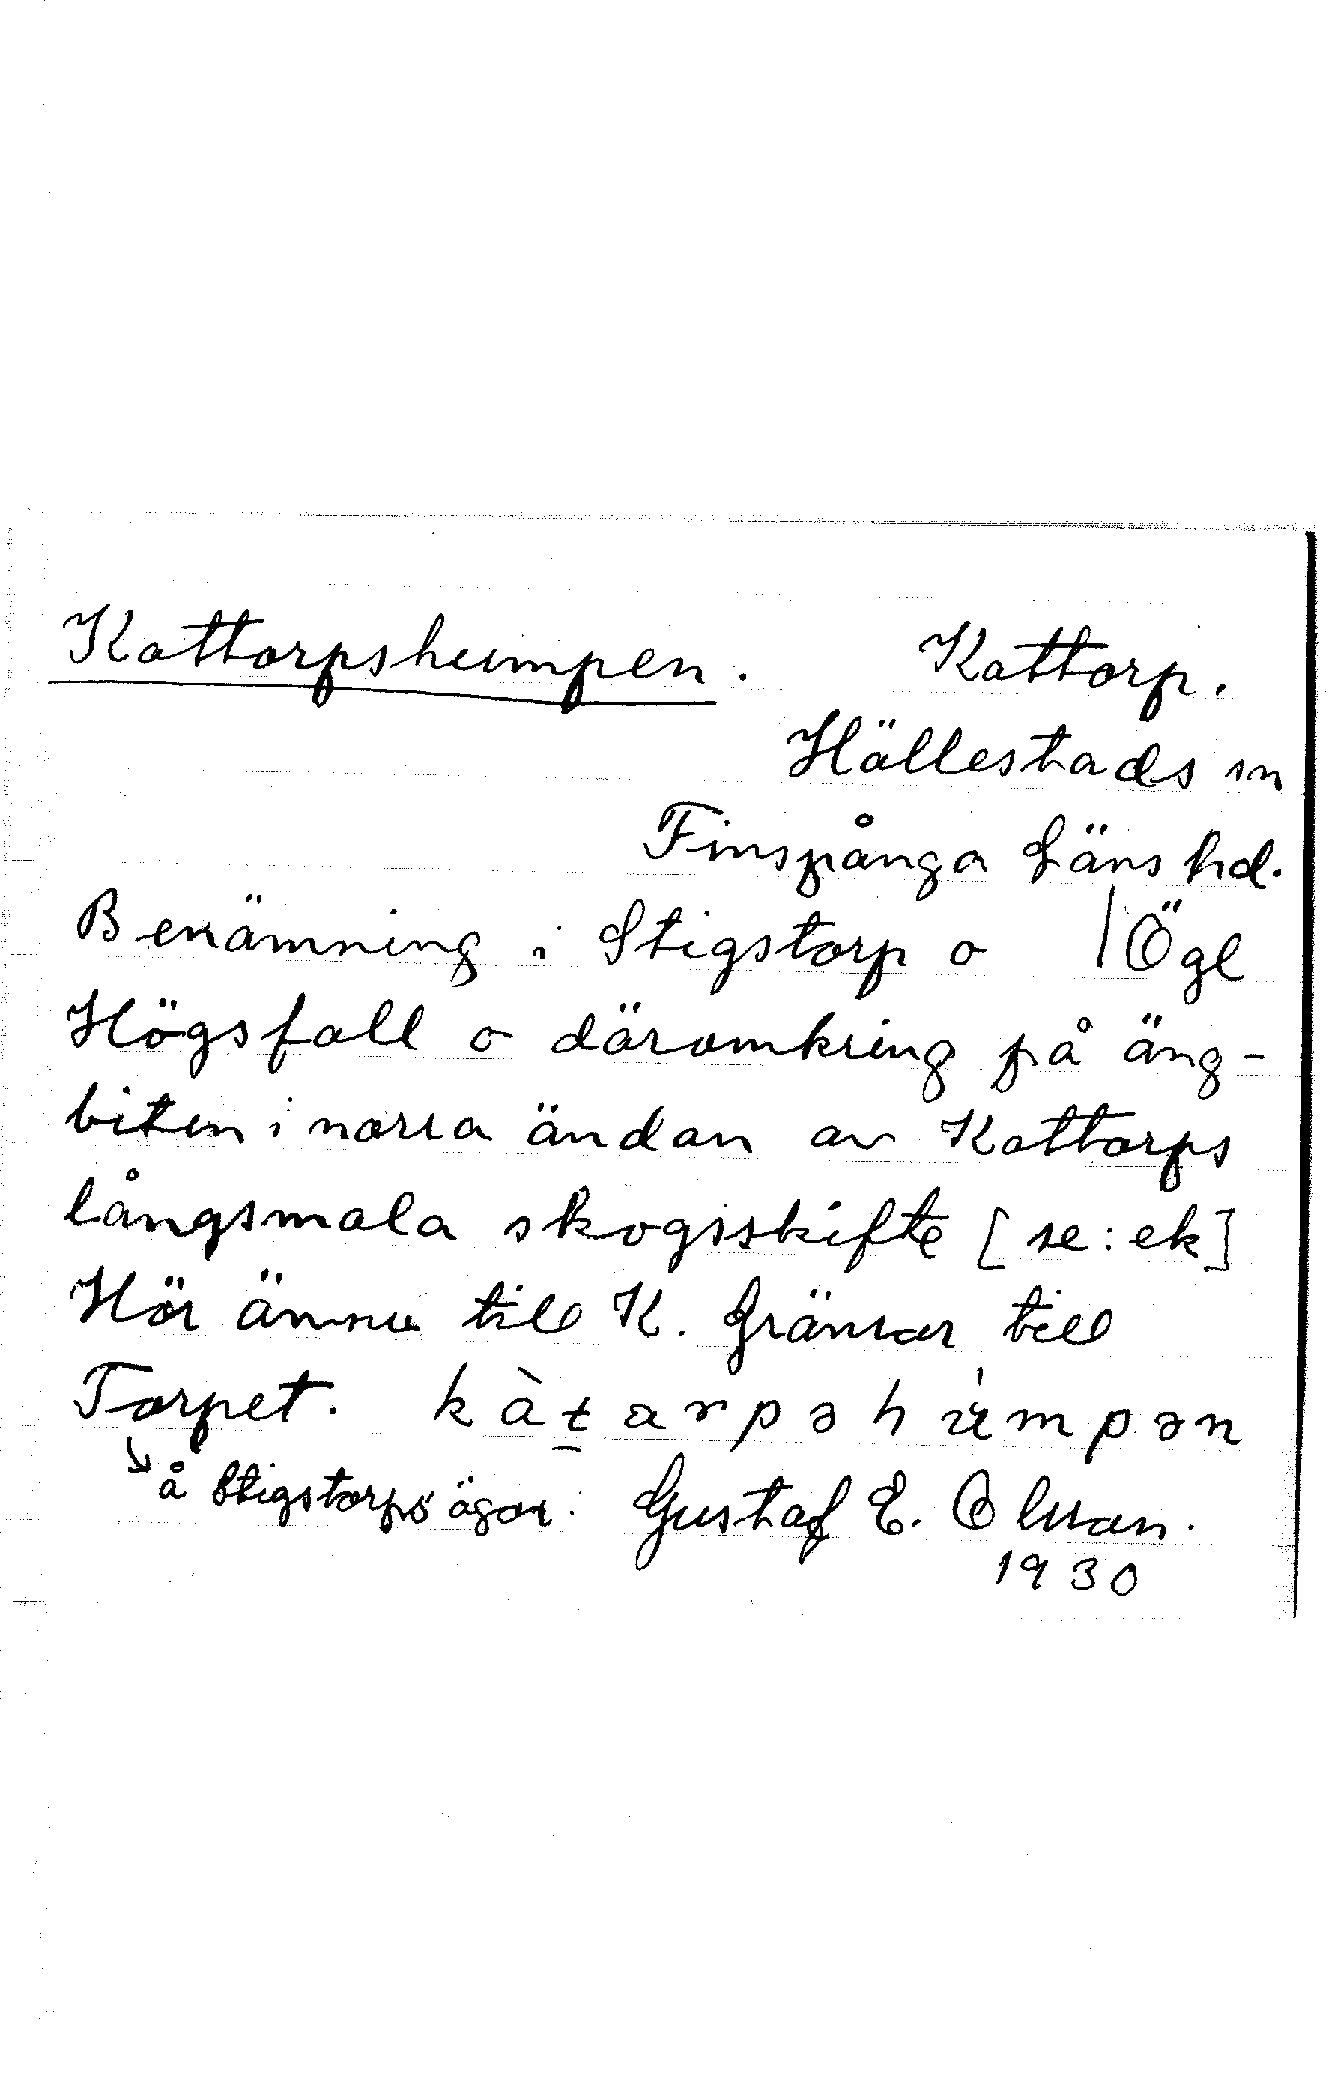 Kattorpshumpen. Kattorp.
Hällestads sn
Finspånga Läns hd.
Benämning i Stigstorp o /Ögl
Högsfall o däromkring på äng-
biten i norra ändan av Kattorps
långsmala skogsskifte [se: ek]
Hör ännu till K. Gränsar till
Torpet. kàṯarpəhúmpən
↘ å Stigstorps ägor. Gustaf E. Olsson.
1930